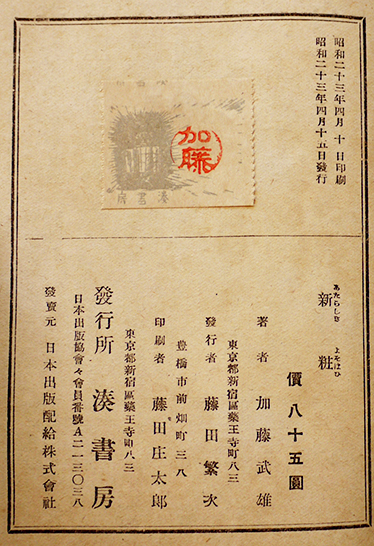 昭和二十三年四月十日印刷
昭和二十三年四月十五日發行
加藤
湊書房
新粧
あたらしき よそほひ
價八十五圓
著者 加藤武雄
東京都新宿區藥王寺町八三
發行者 藤田繁次
豊橋市前畑町三八
印刷者 藤田庄太郎
東京都新宿區藥王寺町八三
發行所 湊書房
日本出版協會々會員番號A二一三〇三八
發賣元 日本出版配給株式會社